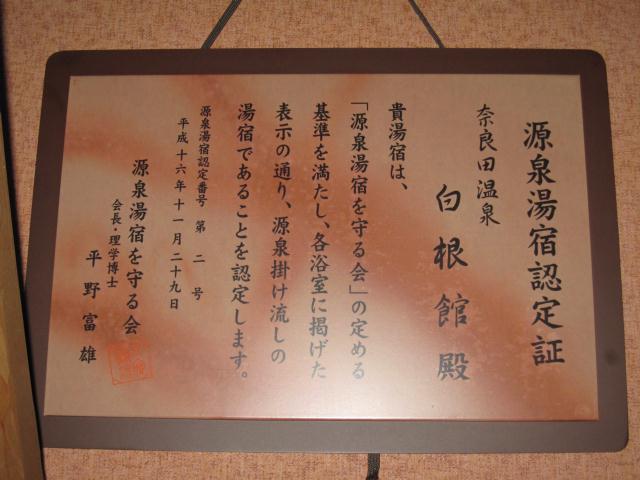 源泉湯宿認定証
奈良田温泉
白根館殿
貴湯宿は、
「源泉湯宿を守る会」の定める
基準を満たし、各浴室に掲げた
表示の通り、源泉掛け流しの
湯宿であることを認定します。
源泉湯宿認定番号 第二号
平成十六年十一月二十九日
源泉湯宿を守る会
会長・理学博士
平野富雄